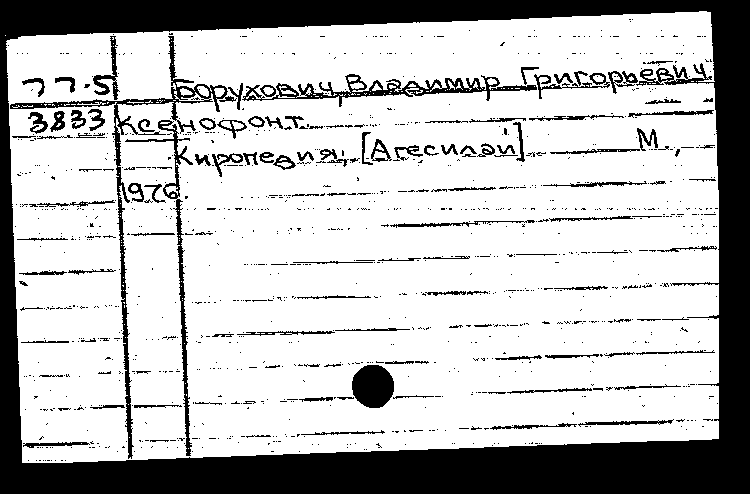 77-5 Борухович, Владимир Григорьевич.
3833 Ксенофонт.
Киропедия; [Агесилай] М.,
1976.